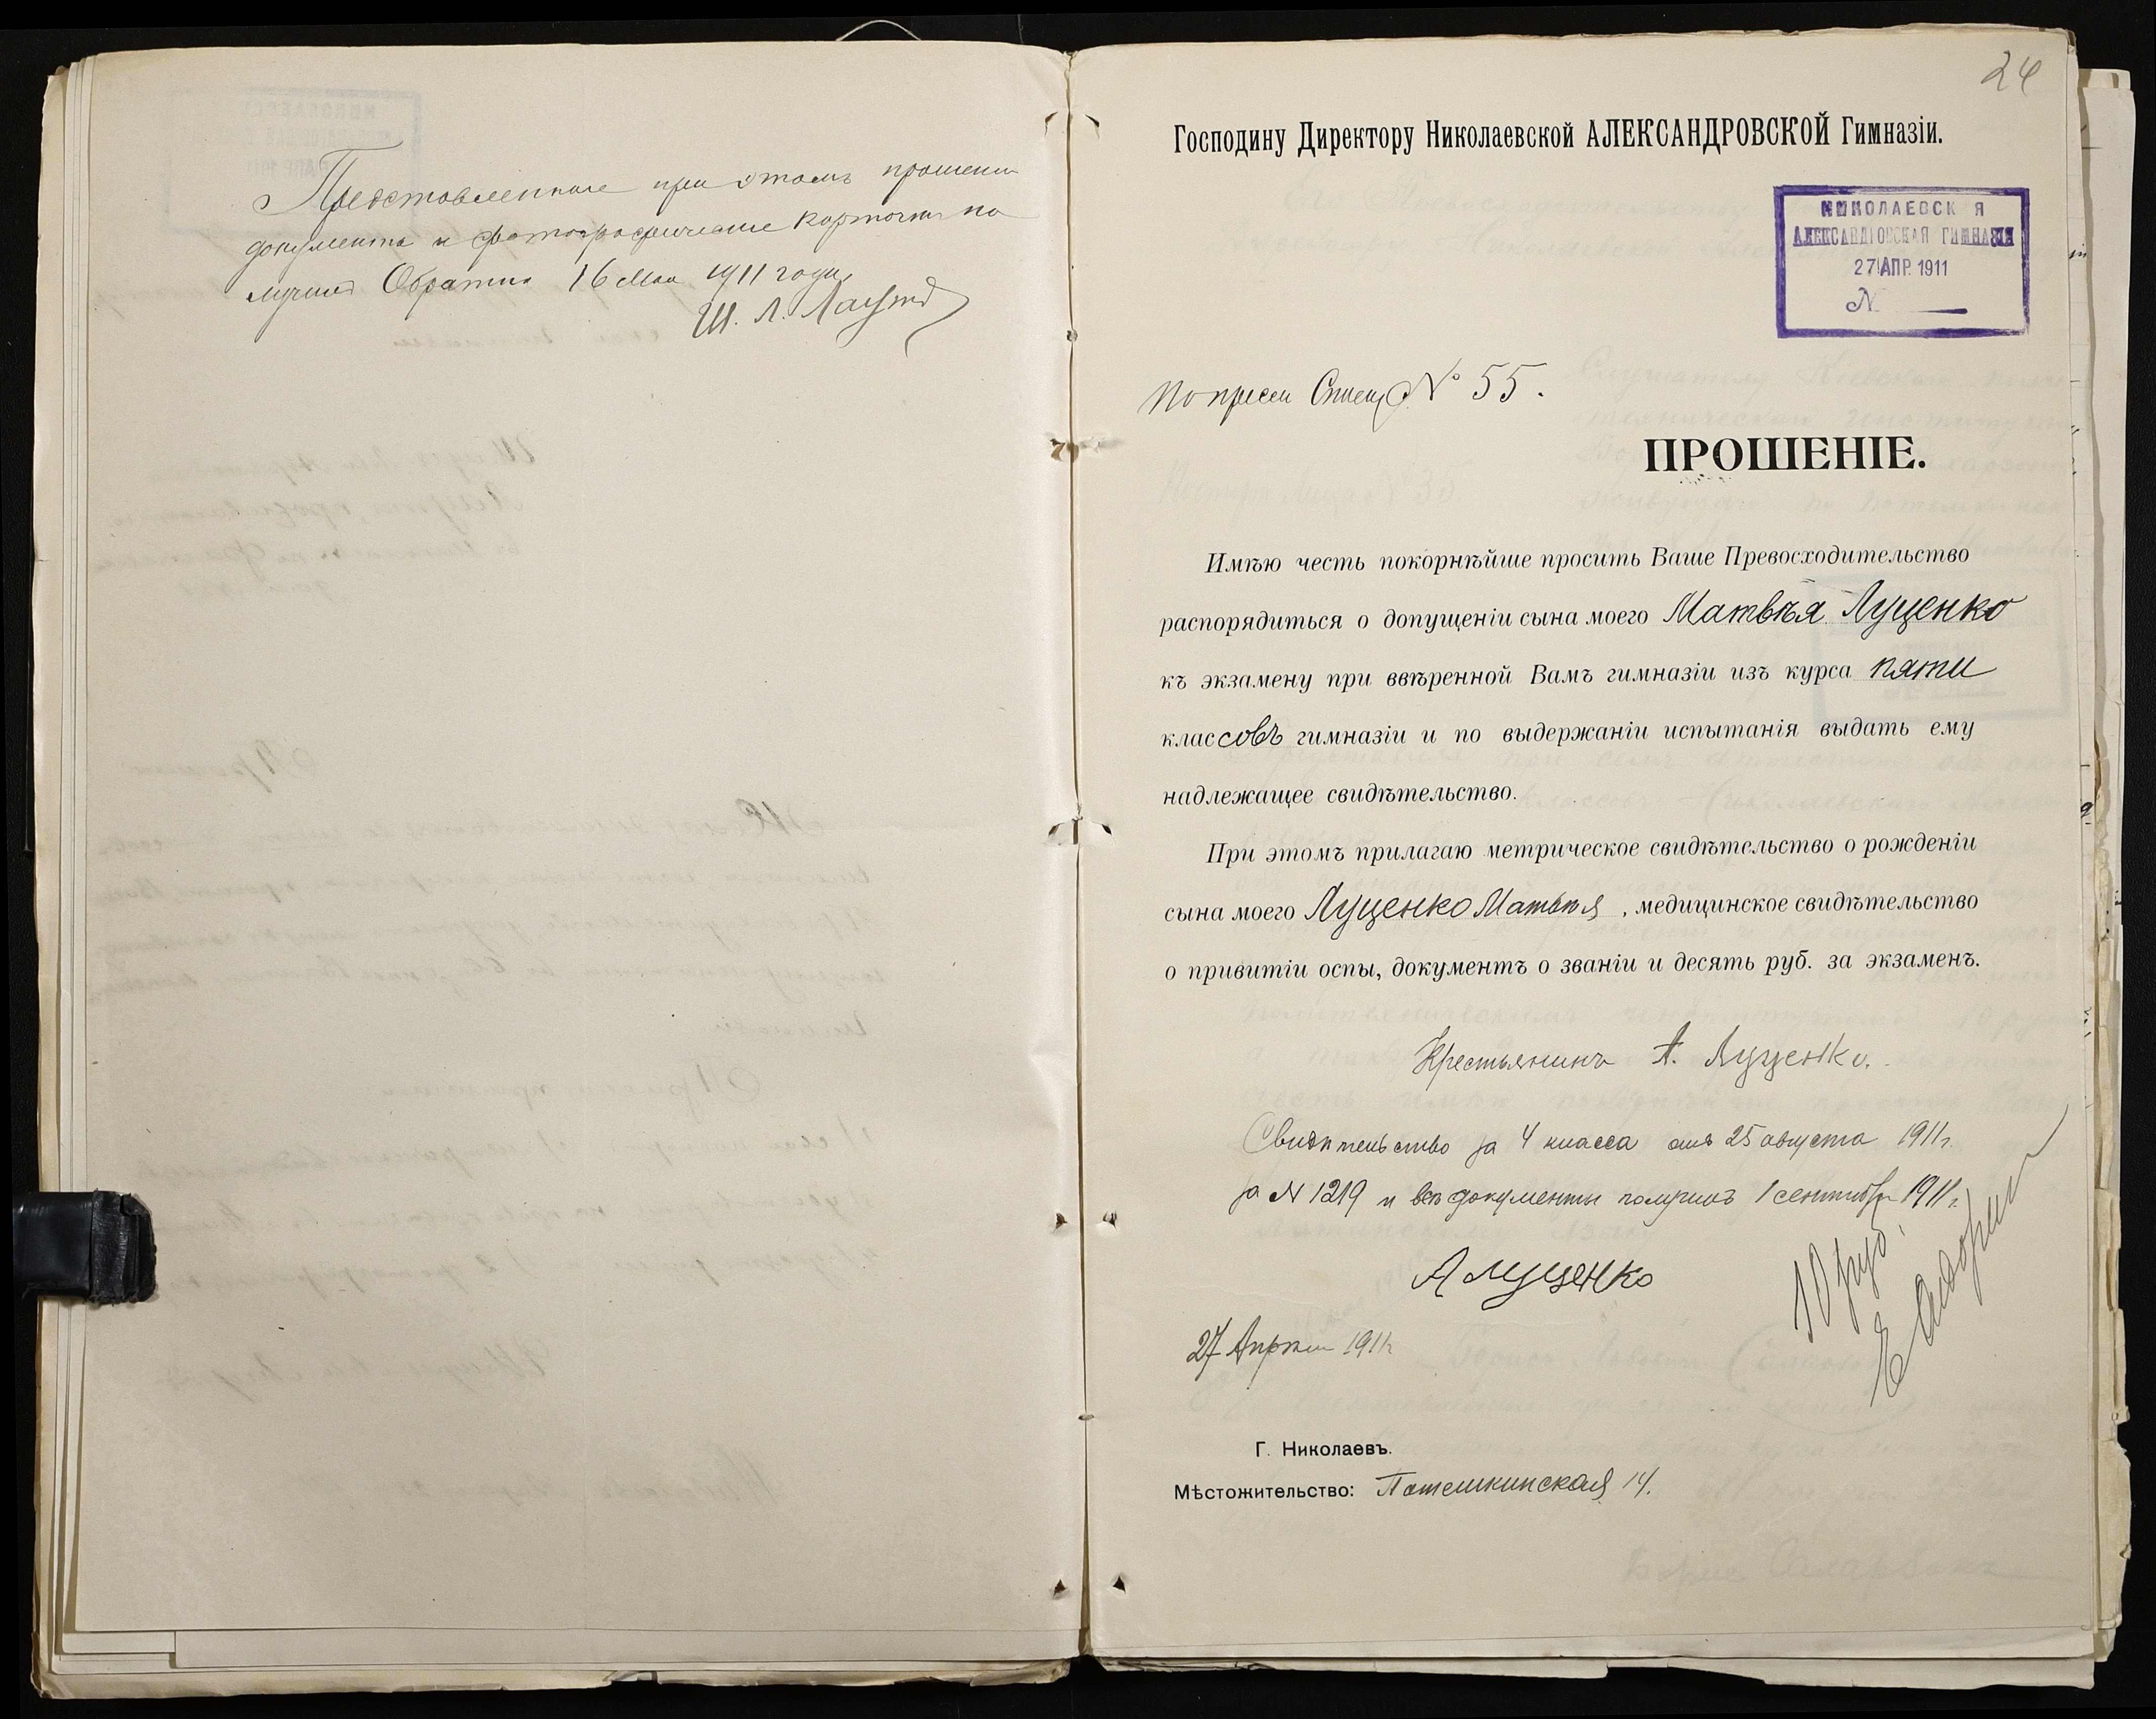 Представленные при этомъ прошении
документы и фотографические карточки по
лучилъ Обратно 16 Мая 1911 года
Ш. Л.
24
Господину Директору Николаевской АЛЕКСАНДРОВСКОЙ Гимназіи.
НИКОЛАЕВСК Я
АЛЕКСАНДРОВСКАЯ ГИМНАЗІЯ
27 АПР. 1911
№
№ 55.
ПРОШЕНІЕ.
Имѣю честь покорнѣйше просить Ваше Превосходительство
распорядиться о допущеніи сына моего Матвѣя Луценко
къ экзамену при ввѣренной Вамъ гимназіи изъ курса пяти
классовъ гимназіи и по выдержаніи испытанія выдать ему
надлежащее свидѣтельство.
При этомъ прилагаю метрическое свидѣтельство о рожденіи
сына моего Луценко Матвѣя, медицинское свидѣтельство
о привитіи оспы, документъ о званіи и десять руб. за экзаменъ.
Крестьянинъ А. Луценко.
Свидѣтельство за 4 класса отъ 25 августа 1911 г.
за № 1219 и всѣ документы получилъ 1 сентября 1911 г.
А Луценко
10 руб.
27 Апрѣля 1911 г.
Г. Николаевъ.
Мѣстожительство: Потемкинская 14.